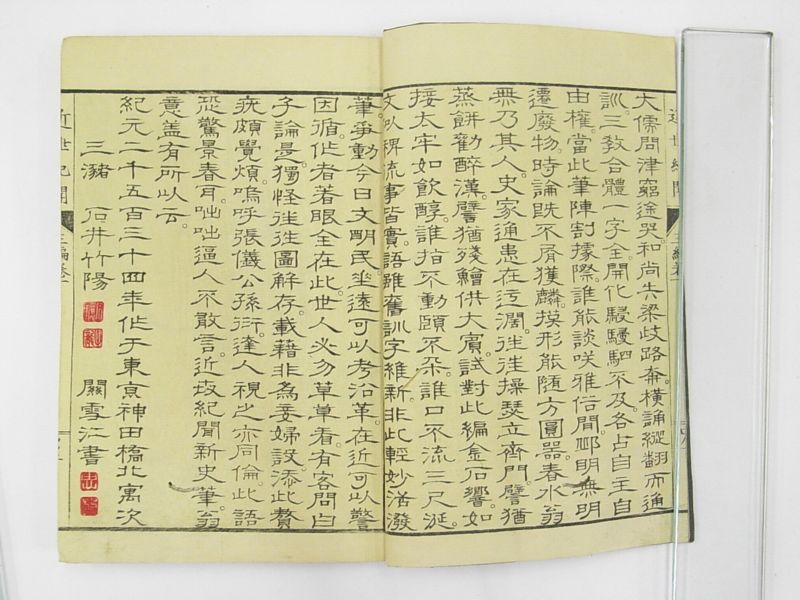 大儒問津窮途哭。和尚失梁歧路奔。橫誦縱翻而通
訓。三教合體一字全。開化駸駸駟不及。各占自主自
由權。當此筆陣割據際。誰能談咲雅俗間。邨明無明
遷廢物。時論旣不屑獲麟。摸形能随方圓器。春水翁
無乃其人。史家通患在迂濶。往往操瑟立齊門。譬猶
蒸餅勸醉漢。譬猶殘鱠供大賓。試對此編金石響。如
接太牢如飲醇。誰指不動頤不朶。誰口不流三尺涎
文以稗流事皆實。語雖舊訓字維新。非此輕妙活潑
筆。爭動今日文明民。坐遠可以考沿革。在近可以警
因循。作者著眼全在此。世人必勿草草看。有客問白
子論是。獨怪往往圖解存。載藉非為妾婦設。添此贅
疣頗覺煩。嗚呼張儀公孫衍。達人視之亦同倫。此語
恐驚景春耳。咄咄逼人不敢言。近故紀聞新史筆。翁
意盖有所以云。
紀元二千五百三十四年作于東京神田橋北寓次
三瀦 石井竹陽
關雪江書
近世紀聞 三編卷一